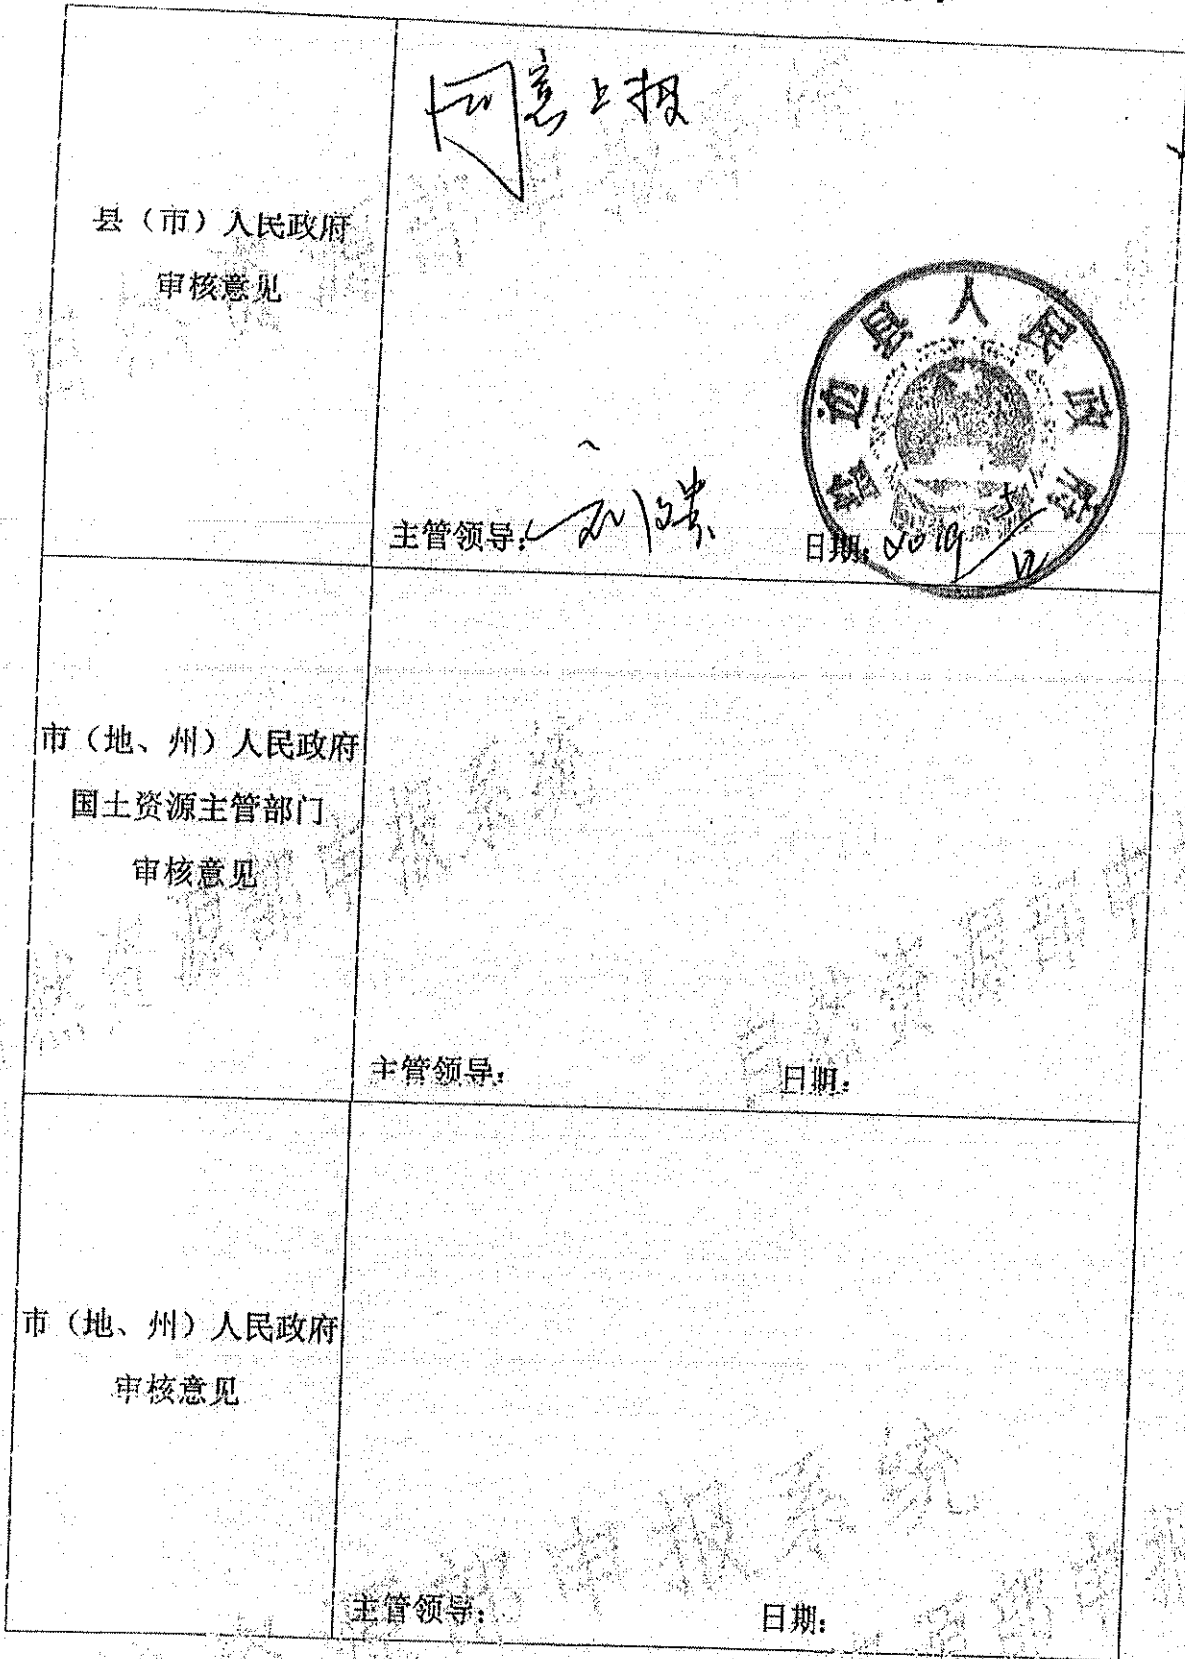 同意上报
县（市）人民政府
审核意见
县人民政府
主管领导：
日期：2019
市（地、州）人民政府
国土资源主管部门
审核意见
主管领导：
日期：
市（地、州）人民政府
审核意见
申报系统
主管领导：
日期：